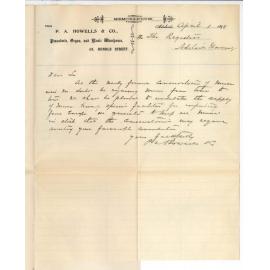 MEMORANDUM
FROM
P. A. HOWELLS & CO.,
Pianoforte, Organ, and Music Warehouse,
RUNDLE STREET
Adelaide April 2 189
To The Registrar
Adelaide University
Dear Sir
As the newly formed Conservatorium of Music
will no doubt be requiring music from time to
time we shall be pleased to undertake the supply
of Music having special facilities for
to keep any music
in stock that the Conservatorium may require
your favorable consideration
Yours faithfully
P A Howells & Co